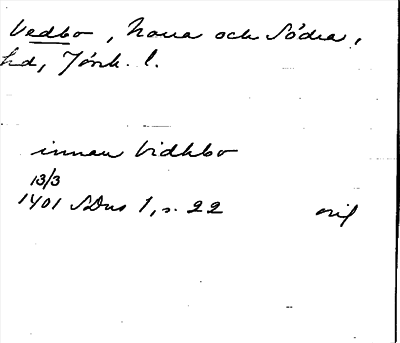 Vedbo, Norra och Södra,
hd, Jönk. l.
innan Vidhbo
13/3
1401 SDns 1, s. 22 orig